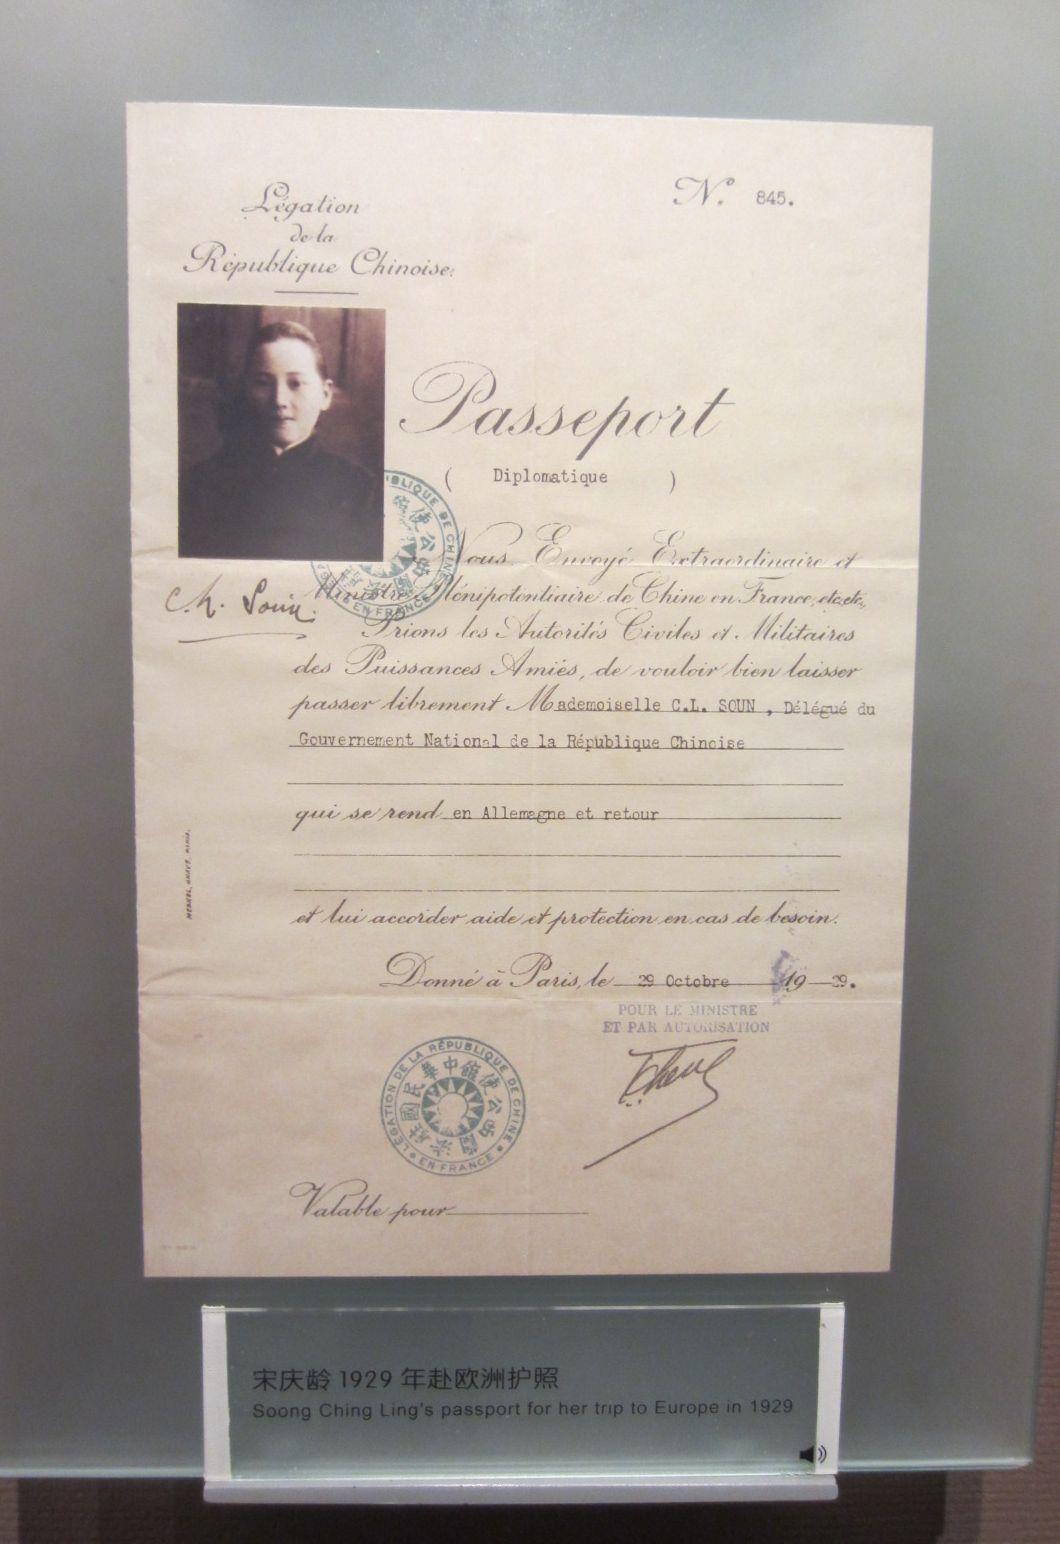 Légation
de la
République Chinoise.
N°. 845.
Passeport
( Diplomatique )
Nous Envoyé Extraordinaire et
Ministre Plénipotentiaire de Chine en France, etc. etc.,
Prions les Autorités Civiles et Militaires
des Puissances Amiés, de vouloir bien laisser
passer librement Mademoiselle C.L. SOUN , Délégué du
Gouvernement National de la République Chinoise
qui se rend en Allemagne et retour
et lui accorder aide et protection en cas de besoin.
Donné à Paris, le 29 Octobre 19 29.
POUR LE MINISTRE
ET PAR AUTORISATION
LÉGATION DE LA RÉPUBLIQUE DE CHINE
EN FRANCE
中華民國駐法國公使館
Valable pour
宋庆龄 1929 年赴欧洲护照
Soong Ching Ling's passport for her trip to Europe in 1929